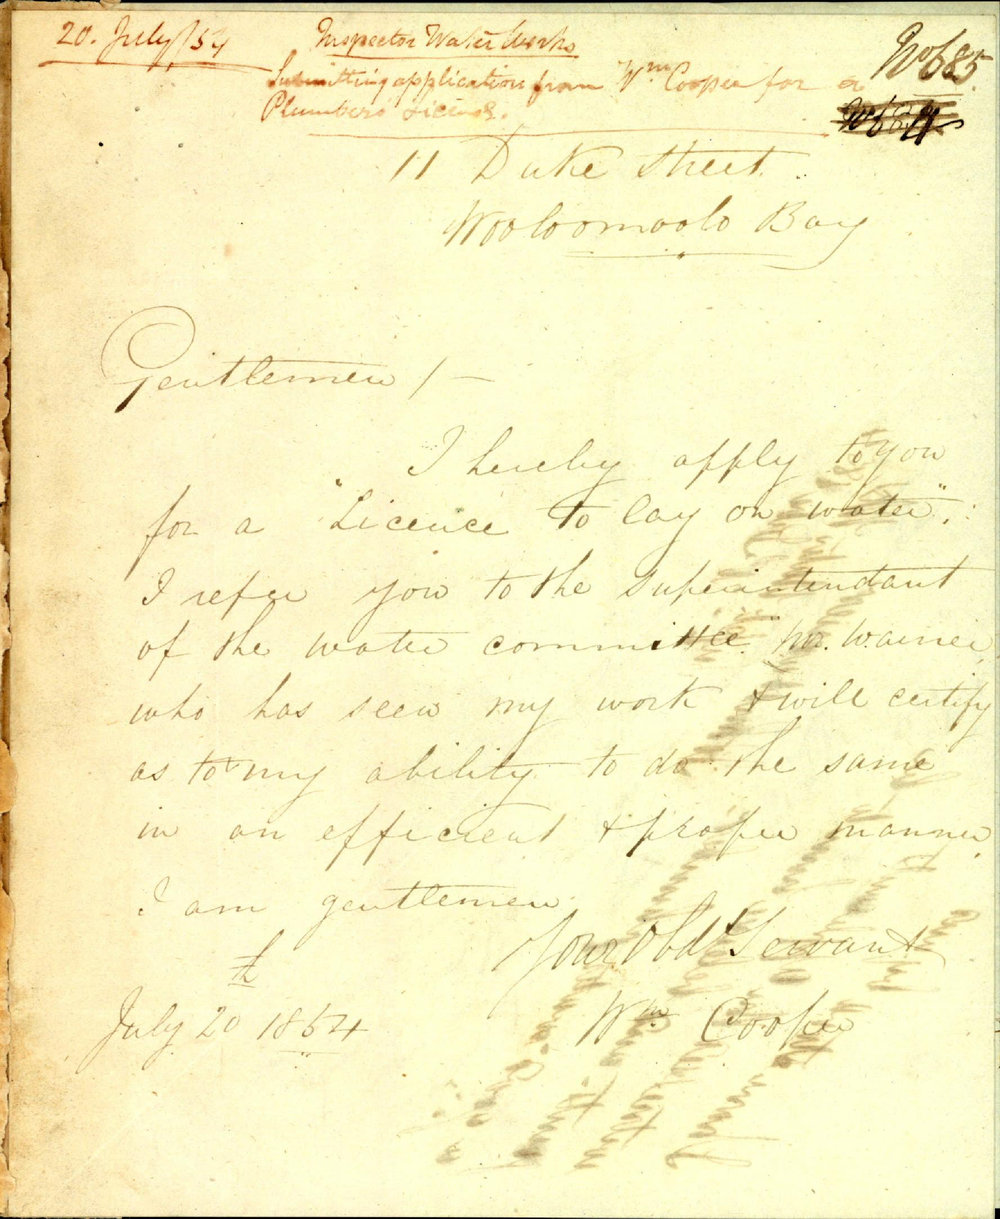 20. July/54
Inspector Water Works
Submitting application from Wm Cooper for a
Plumbers Licence.
No 685.
11 Duke Street.
Wooloomoolo Bay
Gentlemen /—
I hereby apply to you
for a "Licence to lay on water".
I refer you to the Superintendant
of the water committee. Mr. Warner,
who has seen my work & will certify
as to my ability to do the same
in an efficient & proper manner,
I am gentlemen
Your Obdt Servant
Wm Cooper
July 20th 1854